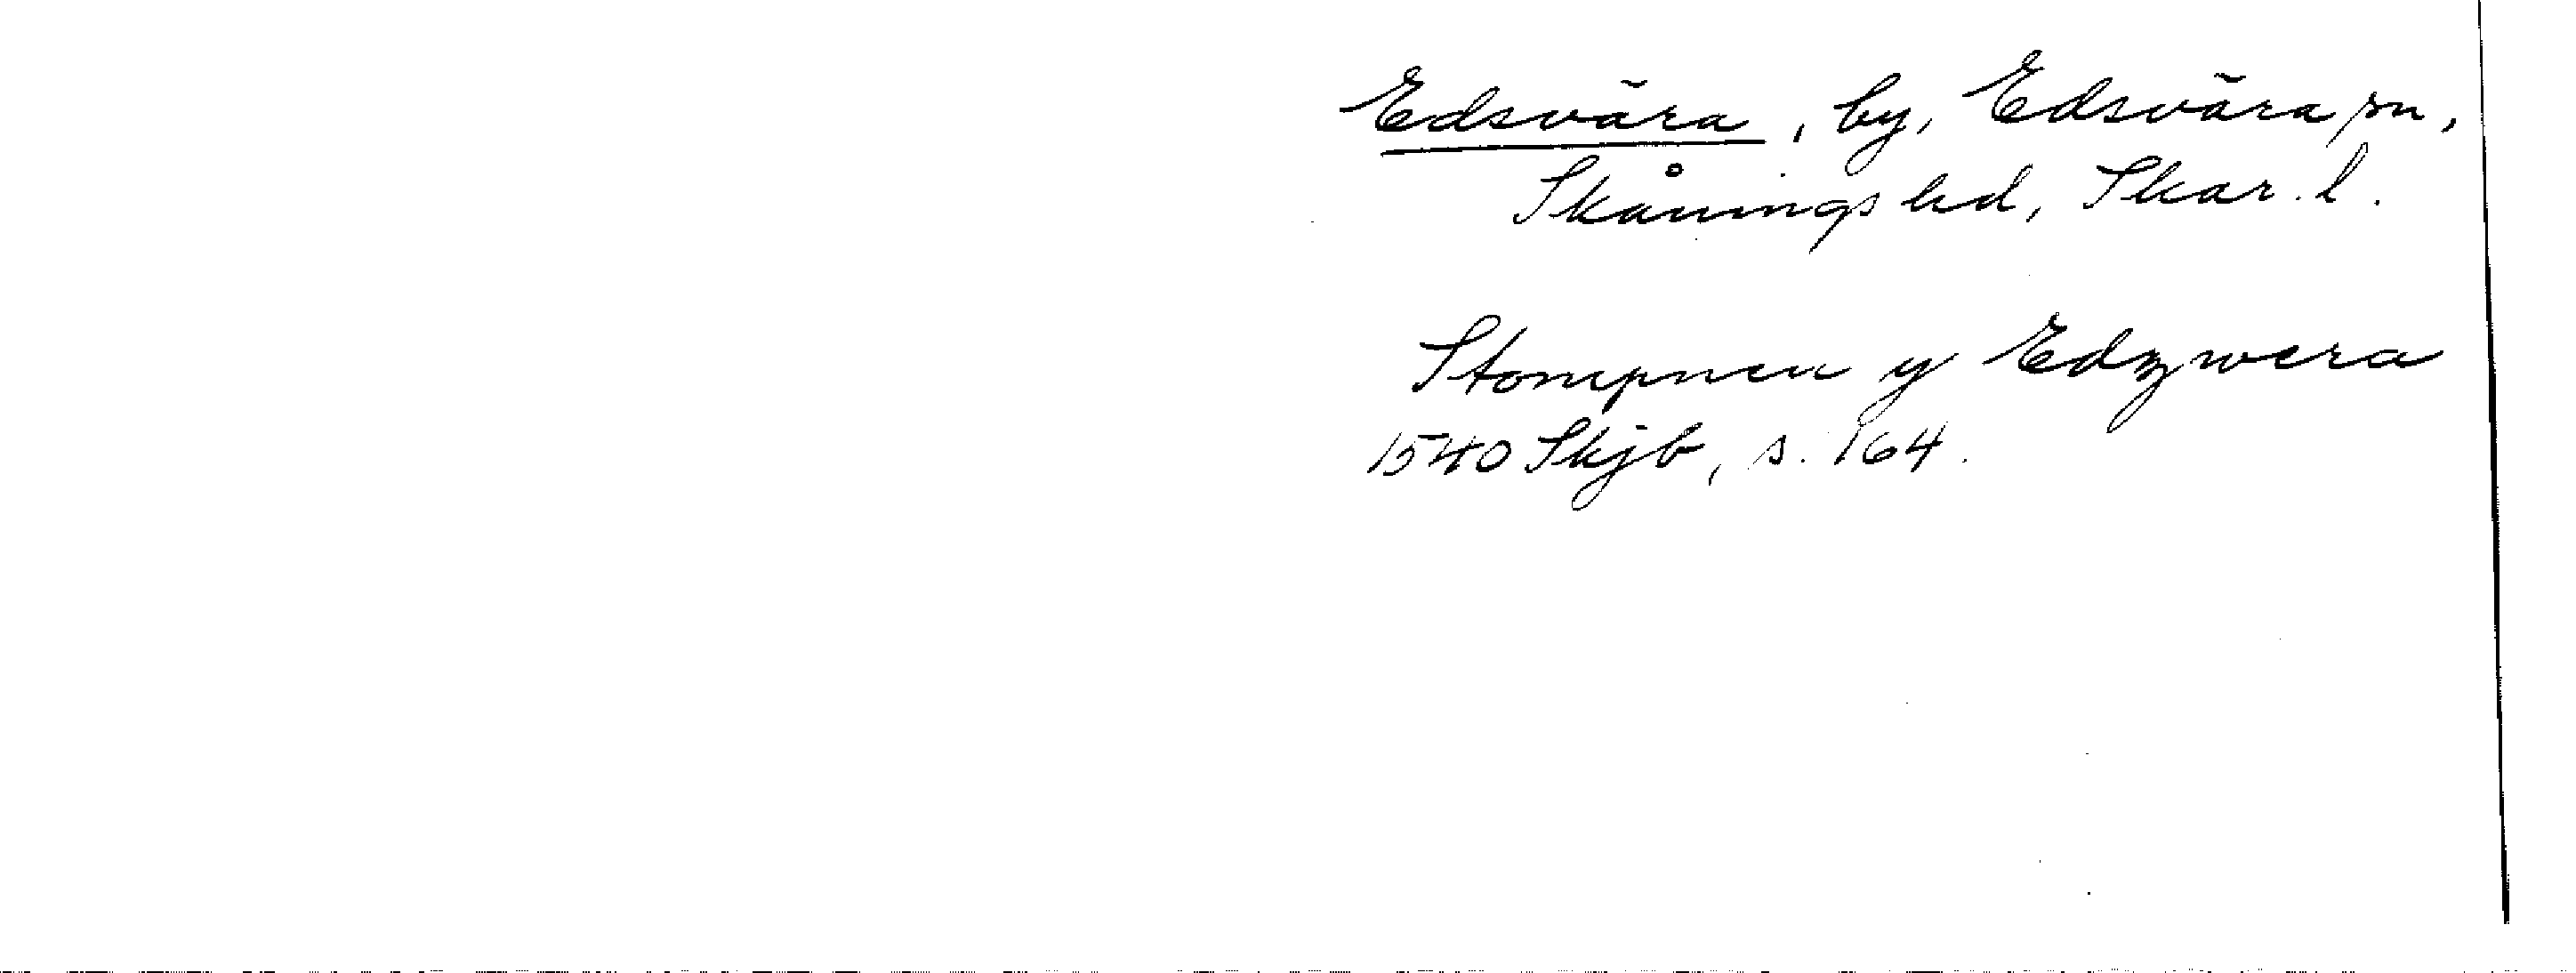 Edsvära, by, Edsvära sn,
Skånings hd, Skar. l.
Stompnen y Edzwera
1540 Skjb, s. 164.